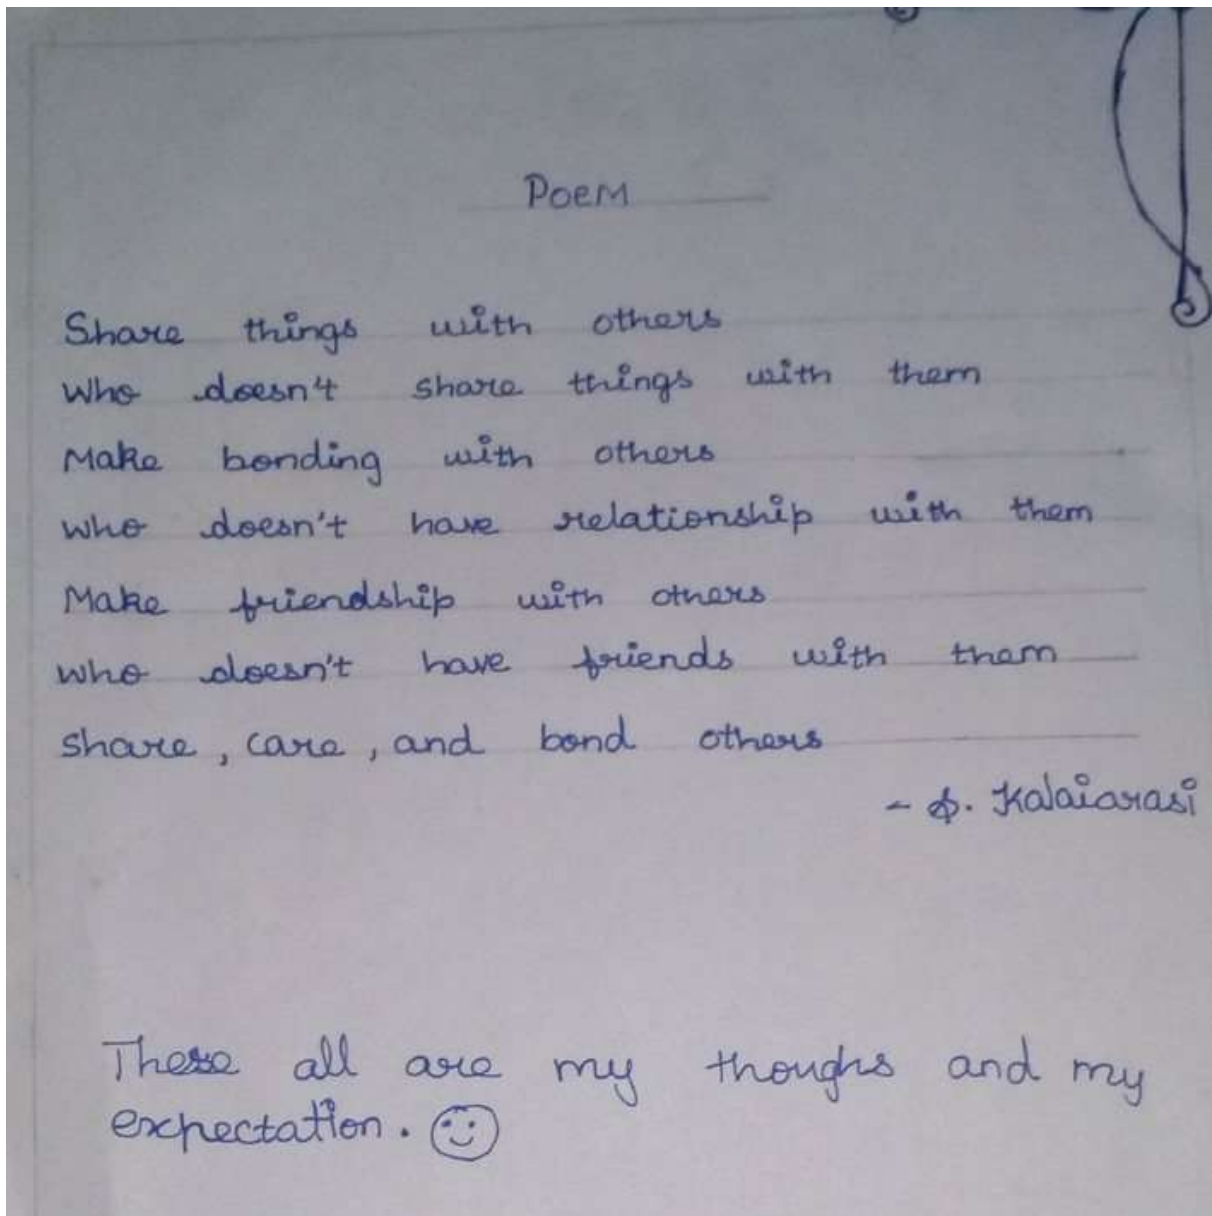 Poem
Share things with others
Who doesn't share things with them
Make bonding with others
who doesn't have relationship with them
Make friendship with others
who doesn't have friends with them
share, care, and bond others
- S. Kalaiarasi
These all are my thoughs and my
expectation. ☺